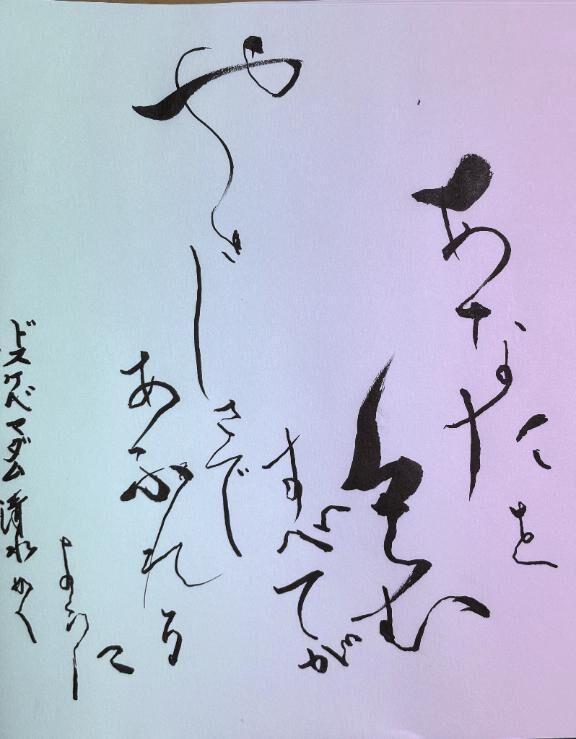 あなたを
包む
すべてが
やさしさで
あふれる
ように
ドスケベマダム 清水めく